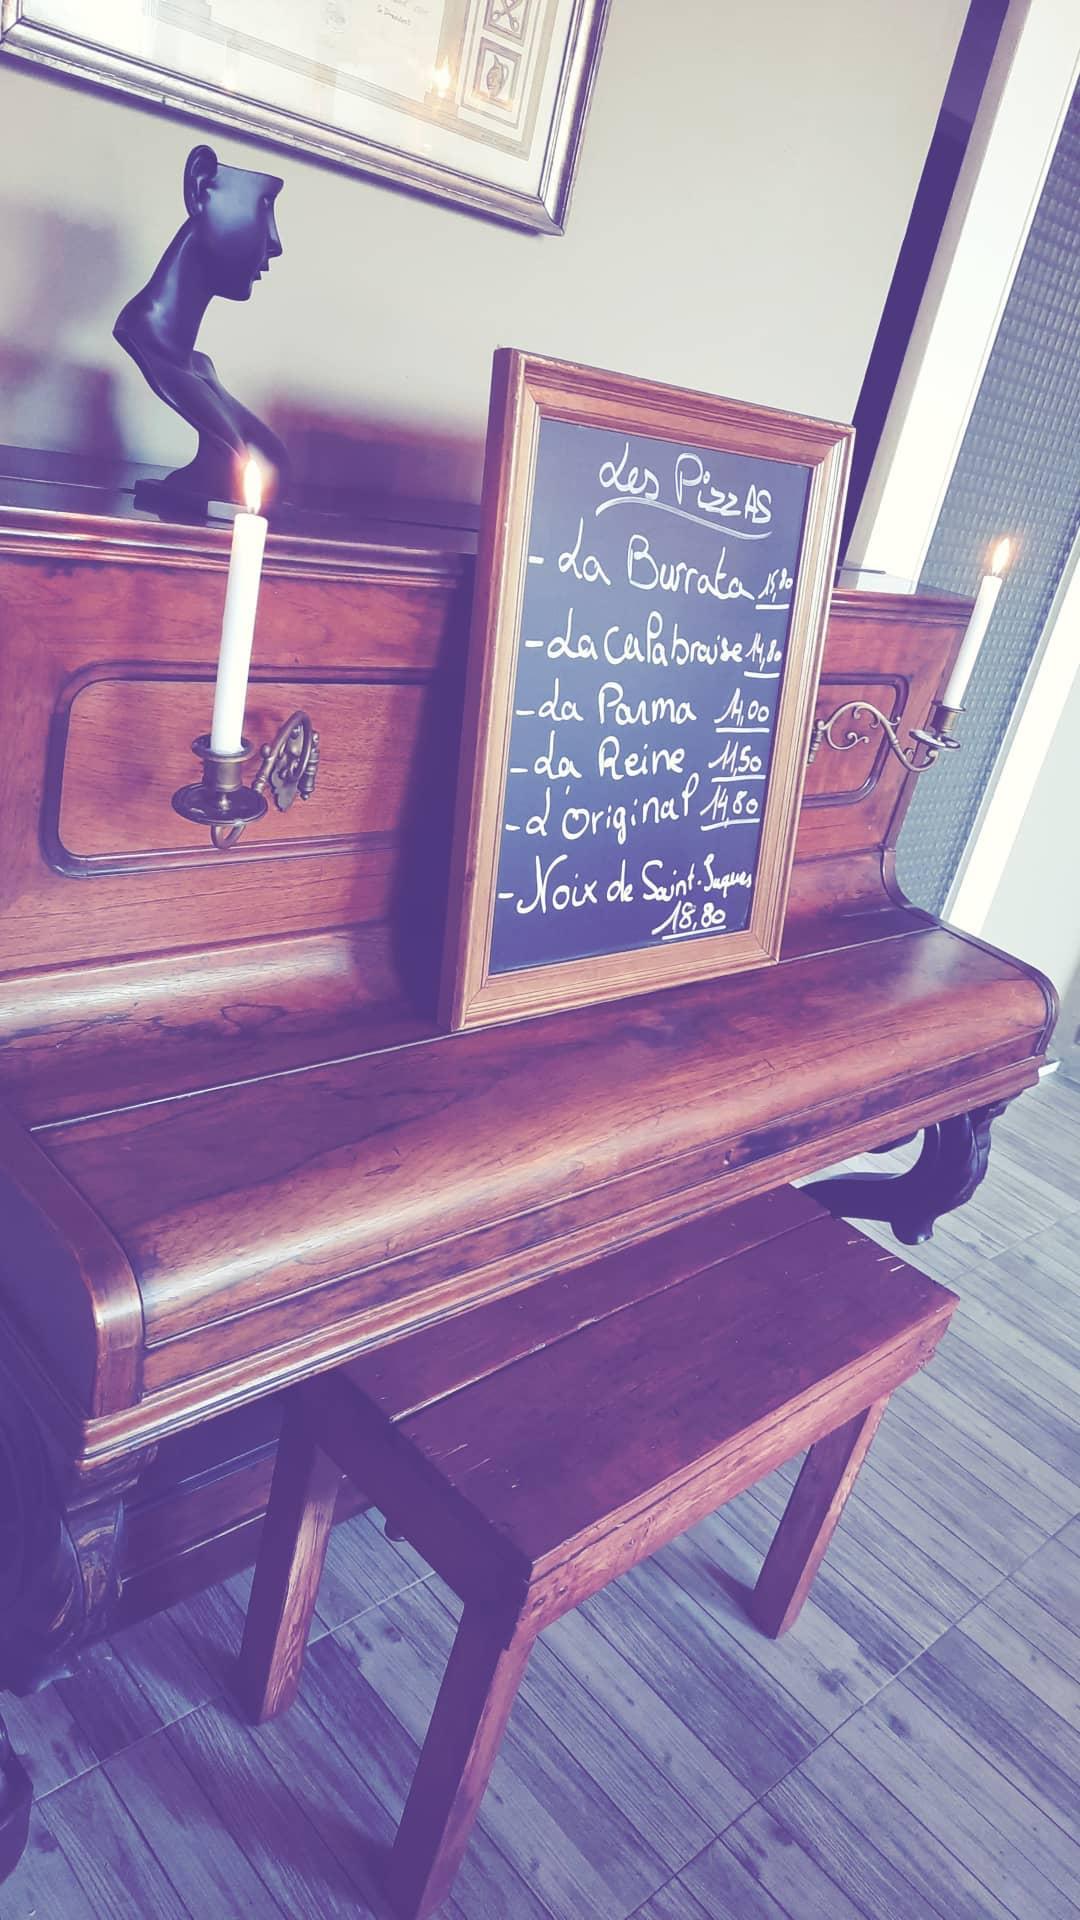 Les PizzAS
- La Burrata 15,80
- La Calabraise 14,80
- La Parma 14,00
- La Reine 11,50
- L'original 14,80
- Noix de Saint-Jaques
18,80